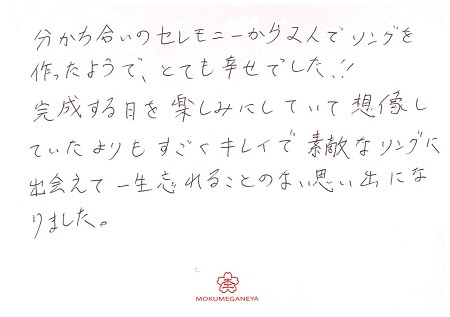 分かち合いのセレモニーから2人でリングを
作ったようで、とても幸せでした!!
完成する日を楽しみにしていて想像し
ていたよりもすごくキレイで素敵なリングに
出会えて一生忘れることのない思い出にな
りました。
MOKUMEGANEYA